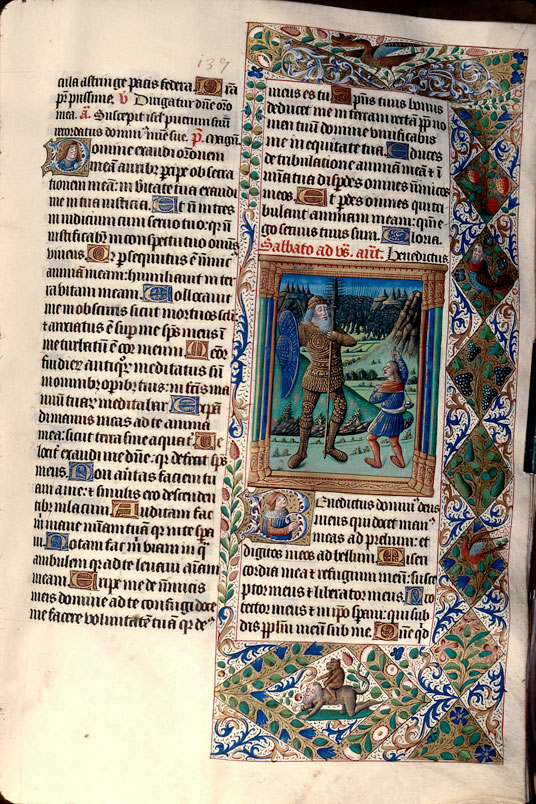 139
cula astringe pacis federa. P
pissime. V Dirigatur dñe oro
mea. A. Suscepit isrl puerum suũ
recordatus domin mie sue. p.
Domine exaudi orõnem
meã auribꝰ percipe obsecra
tionem meã: in ueritate tua exaudi
me in tua iusticia. Et nõ intres
in iudicium cum seruo tuo: qr nõ
iustificabir in conspectu tuo omnis
viuens. Qr psequutus ẽ inimicꝰ
animã meam: humiliauit in ter
ra vitam meam. Collocauit
me in obscuris sicut mortuos seli
et anxiatus ẽ super me spũs meus ĩ
me turbatũ ẽ cor meum. Memor
fui dierũ antiquor meditatus sũ
in omnibꝰ opibꝰ tuis: in factis ma
nuũ tuar meditabar. Expan
di manus meas ad te anima
mea: sicut terra sine aqua t. Ve
lociter exaudi me dñe: qr defecit spũs
meus. Non auertas faciem tu
am a me: et similis ero descenden
tibꝰ in lacum. Auditam fac
m mane miam tuam qr in te spera
ui. Notam fac m viam in q
ambulem qr ad te leuaui aĩam
meam. Eripe me de inimicis
meis domine ad te confugi doce
me facere voluntatẽ tuã qr deꝰ
meus es tu. Spũs tuus bonus
deducet me in terram rectam pp no
men tuũ domine viuificabis
me in equitate tua. Educes
de tribulatione animã meã et ĩ
mia tua disperdes omnes inimicos
meos. Et perdes omnes qui tri
bulant animam meam: qm e
go seruus tuus sum. Gloria.
Sabbato ad vs. añt. Benedictus
Benedictus dominꝰ deus
meus qui docet manꝰ
meas ad prelium: et
digitos meos ad bellum. Miseri
cordia mea et refugium meũ: susce
ptor meus et liberator meus. Pro
tector meus et in ipso speraui: qui sub
dis pplm meũ sub me. Dñe qd